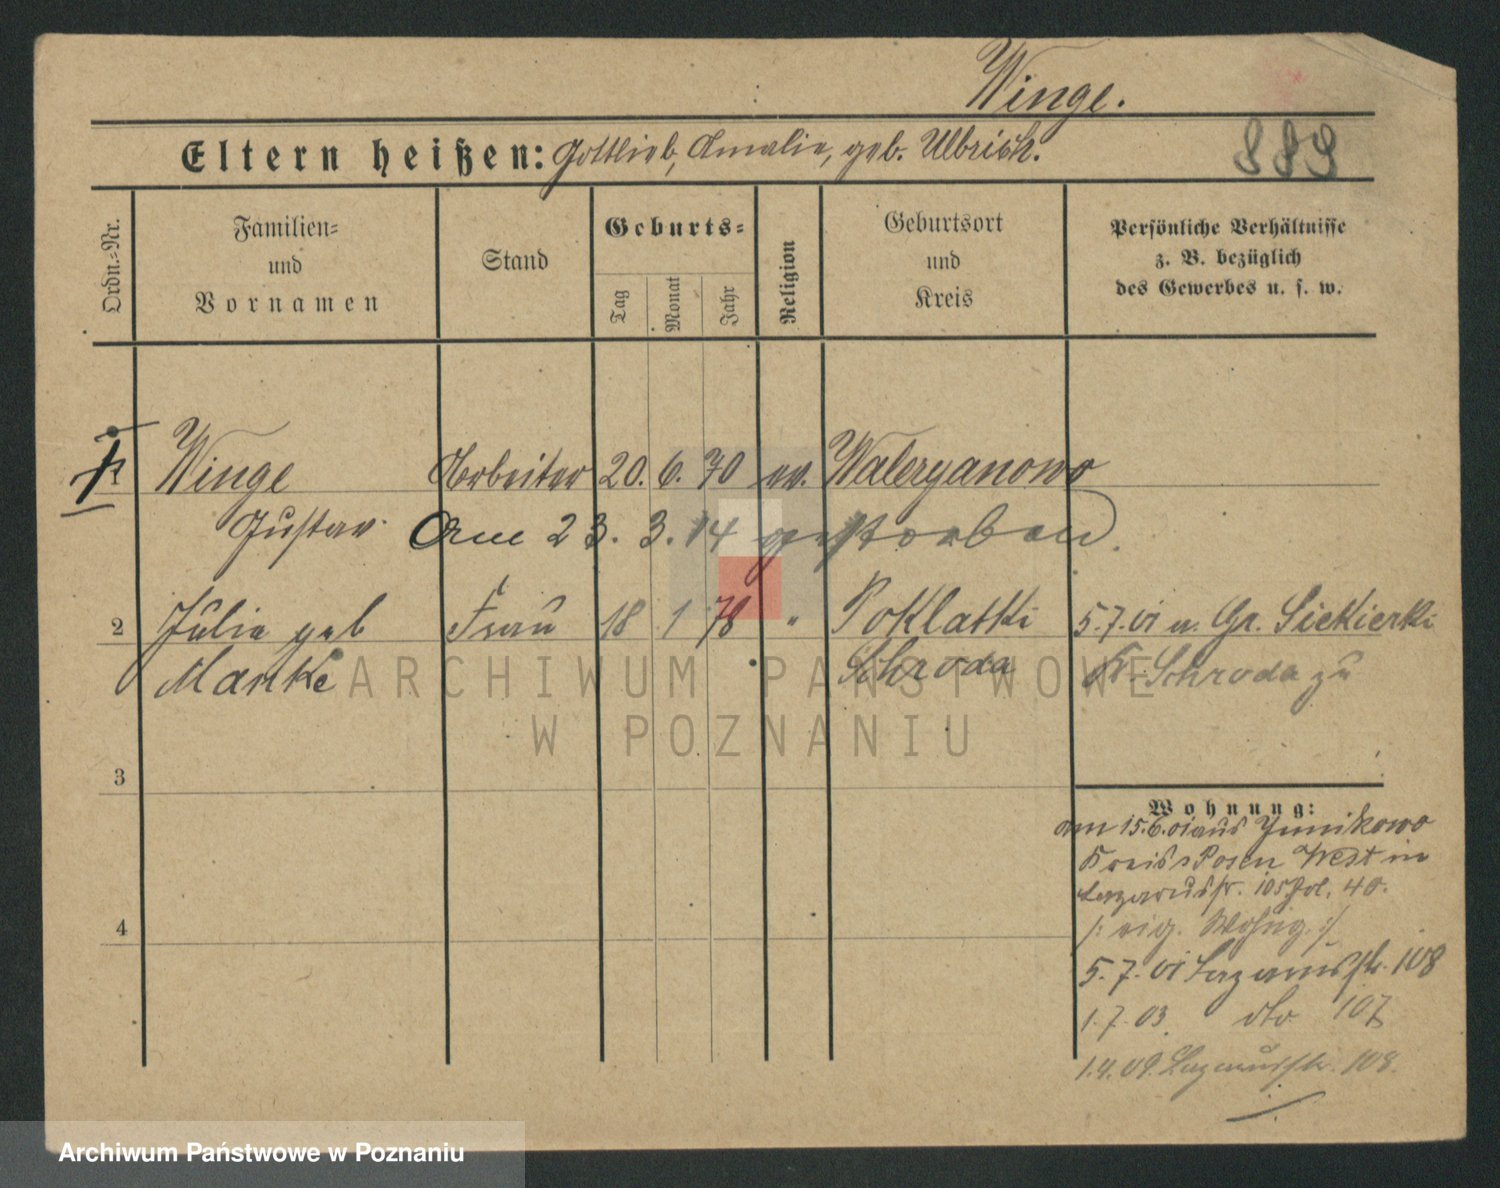 Winge.
889
Eltern heißen: Gottlieb, Amalie, geb. Ulbrich.
Ordn.-Nr.
Familien-
und
Vornamen
Stand
Geburts-
Tag
Monat
Jahr
Religion
Geburtsort
und
Kreis
Persönliche Verhältnisse
z. B. bezüglich
des Gewerbes u. s. w.
Winge Arbeiter 20. 6. 70 ev. Waleryanowo
Gustav Am 23. 3. 14 gestorben.
2 Julie geb Frau 18 1 78 " Poklatki 5.7.01 u. Gr. Siekierki
Manke Schroda K. Schroda zu
3
4
Wohnung:
am 15.6.01 aus Junikowo
Kreis Posen West in
Lazarusstr. 105 Pol. 40.
/: eig. Wohng :/
5.7.01 Lazarusstr. 108
1.7.03. dto 107
1.4.09. Lazarusstr. 108.
ARCHIWUM PAŃSTWOWE
W POZNANIU
Archiwum Państwowe w Poznaniu